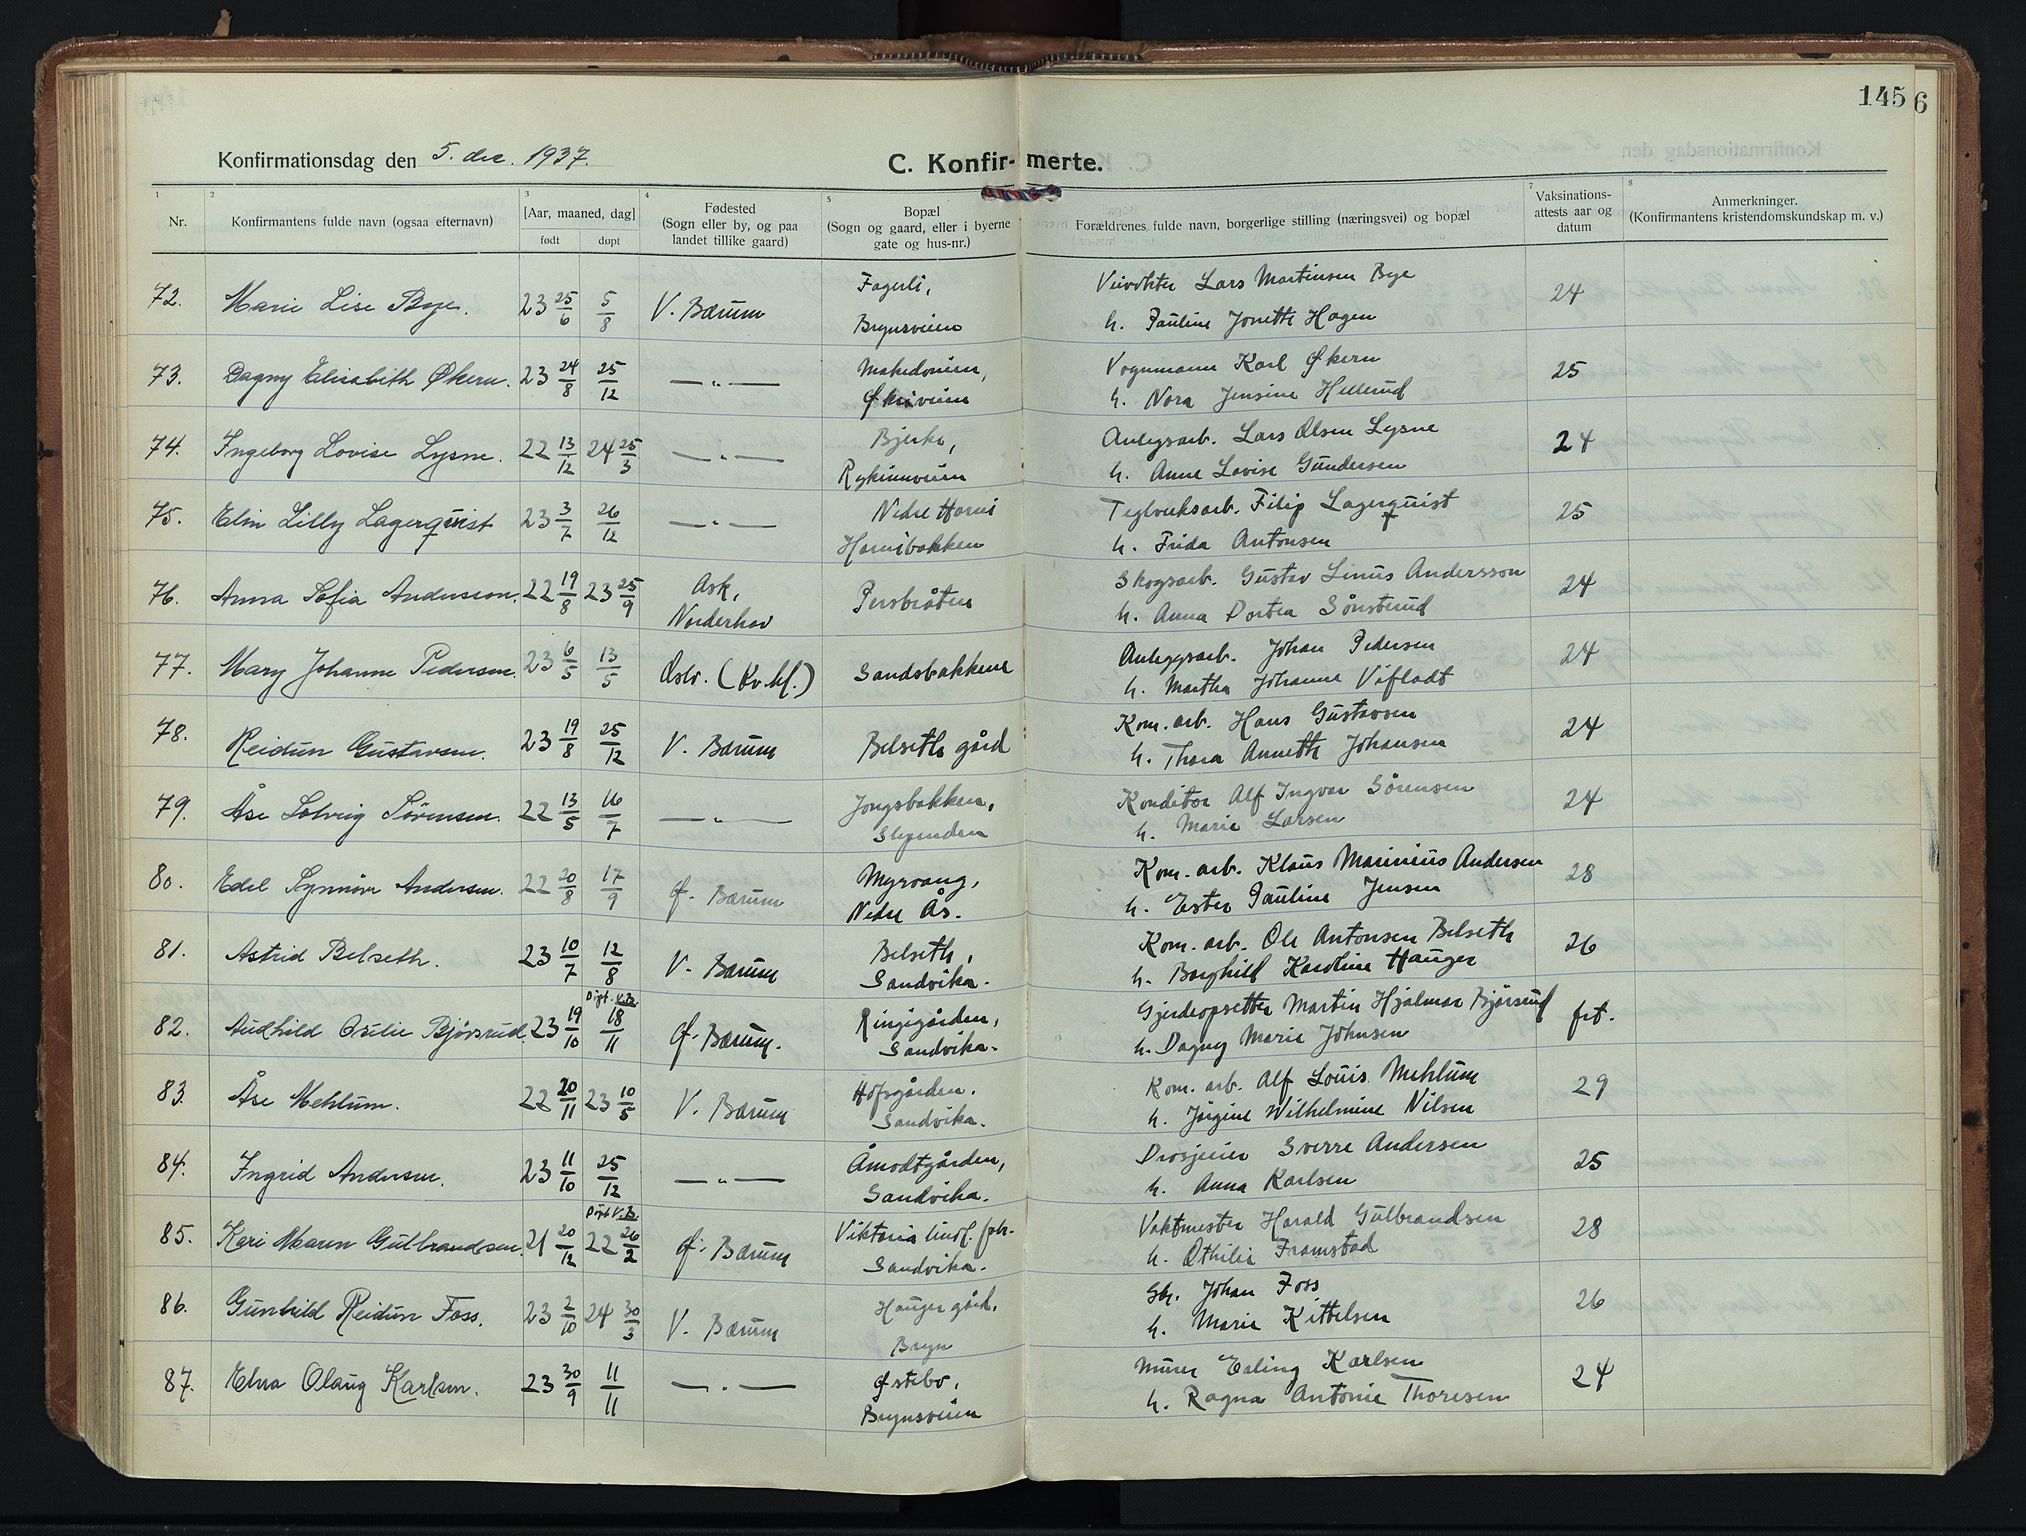 145 6
Konfirmationsdag den 5. dec. 1937.
C. Konfirmerte.
1 2 3 4 5 7 8
Nr.
Konfirmantens fulde navn (ogsaa efternavn)
[Aar, maaned, dag]
født døpt
Fødested
(Sogn eller by, og paa
landet tillike gaard)
Bopæl
(Sogn og gaard, eller i byerne
gate og hus-nr.)
Forældrenes fulde navn, borgerlige stilling (næringsvei) og bopæl
Vaksinations-
attests aar og
datum
Anmerkninger.
(Konfirmantens kristendomskundskap m. v.)
72. Marie Lise Bye. 23 25/6 5/8 V. Bærum Fagerli, Veivokter Lars Martinsen Bye 24
Brynsveien h. Pauline Jonette Hagen
73. Dagny Elisabeth Økern. 23 24/8 25/12 —„— Makedonien, Vognmann Karl Økern 25
Økriveien h. Nora Jensine Hellerud
74. Ingeborg Lovise Lysne. 22 13/12 24 25/3 —„— Bjerke, Anlegsarb. Lars Olsen Lysne 24
Rykinnveien h. Anne Lovise Gundersen
75. Elin Lilly Lagerquist 23 3/7 26/12 —„— Nedre Horni Teglverksarb. Filip Lagerquist 25
Hornibakken h. Frida Antonsen
76. Anna Sofia Andersson. 22 19/8 23 25/9 Ask, Persbråten Skogsarb. Gustav Linus Andersson 24
Norderhov h. Anna Dortea Sønsterud
77. Mary Johanne Pedersen. 23 6/5 13/5 Oslo. (Kv.kl.) Sandsbakkene Anleggsarb. Johan Pedersen 24
h. Martha Johanne Vifladt
78. Reidun Gustavsen. 23 19/8 25/12 V. Bærum Belseth gård Kom. arb. Hans Gustavsen 24
h. Thora Annette Johansen
79. Åse Solveig Sørensen. 22 13/5 16/7 —„— Jongsbakken, Konditor Alf Ingvar Sørensen 24
Slependen h. Marie Larsen
80. Edel Synnøve Andersen. 22 20/8 17/9 Ø. Bærum Myrvang, Kom. arb. Klaus Marinius Andersen 28
Nedre Ås. h. Ester Pauline Jensen
81. Astrid Belseth. 23 10/7 12/8 V. Bærum Belseth, Kom. arb. Ole Antonsen Belseth 26
Sandvika. h. Borghild Karoline Hauger
Døpt. V.B.
82. Audhild Orilie Bjørsrud. 23 19/10 18/11 Ø. Bærum. Ringigården, Gjerdeopsetter Martin Hjalmar Bjørsrud frt.
Sandvika. h. Dagny Marie Johnsen
83. Åse Mehlum. 22 20/11 23 10/5 V. Bærum Hofsgården. Kom. arb. Alf Louis Mehlum 29
Sandvika. h. Jørgine Wilhelmine Nilsen
84. Ingrid Andersen. 23 11/10 25/12 —„— Åmodtgården, Drosjeeier Sverre Andersen 25
Sandvika. h. Anna Karlsen
Døpt V.B.
85. Kari Maren Gulbrandsen. 21 20/12 22 26/2 Ø. Bærum Viktoria lindl. fabr. Vaktmester Harald Gulbrandsen 28
Sandvika. h. Othilie Framstad
86. Gunhild Reidun Foss. 23 2/10 24 30/3 V. Bærum Hauger gård. Gb. Johan Foss 26
Bryn h. Marie Kittelsen
87. Elna Olaug Karlsen. 23 30/9 11/11 —„— Østebo, Murer Erling Karlsen 24
Brynsveien h. Ragna Antonie Thoresen